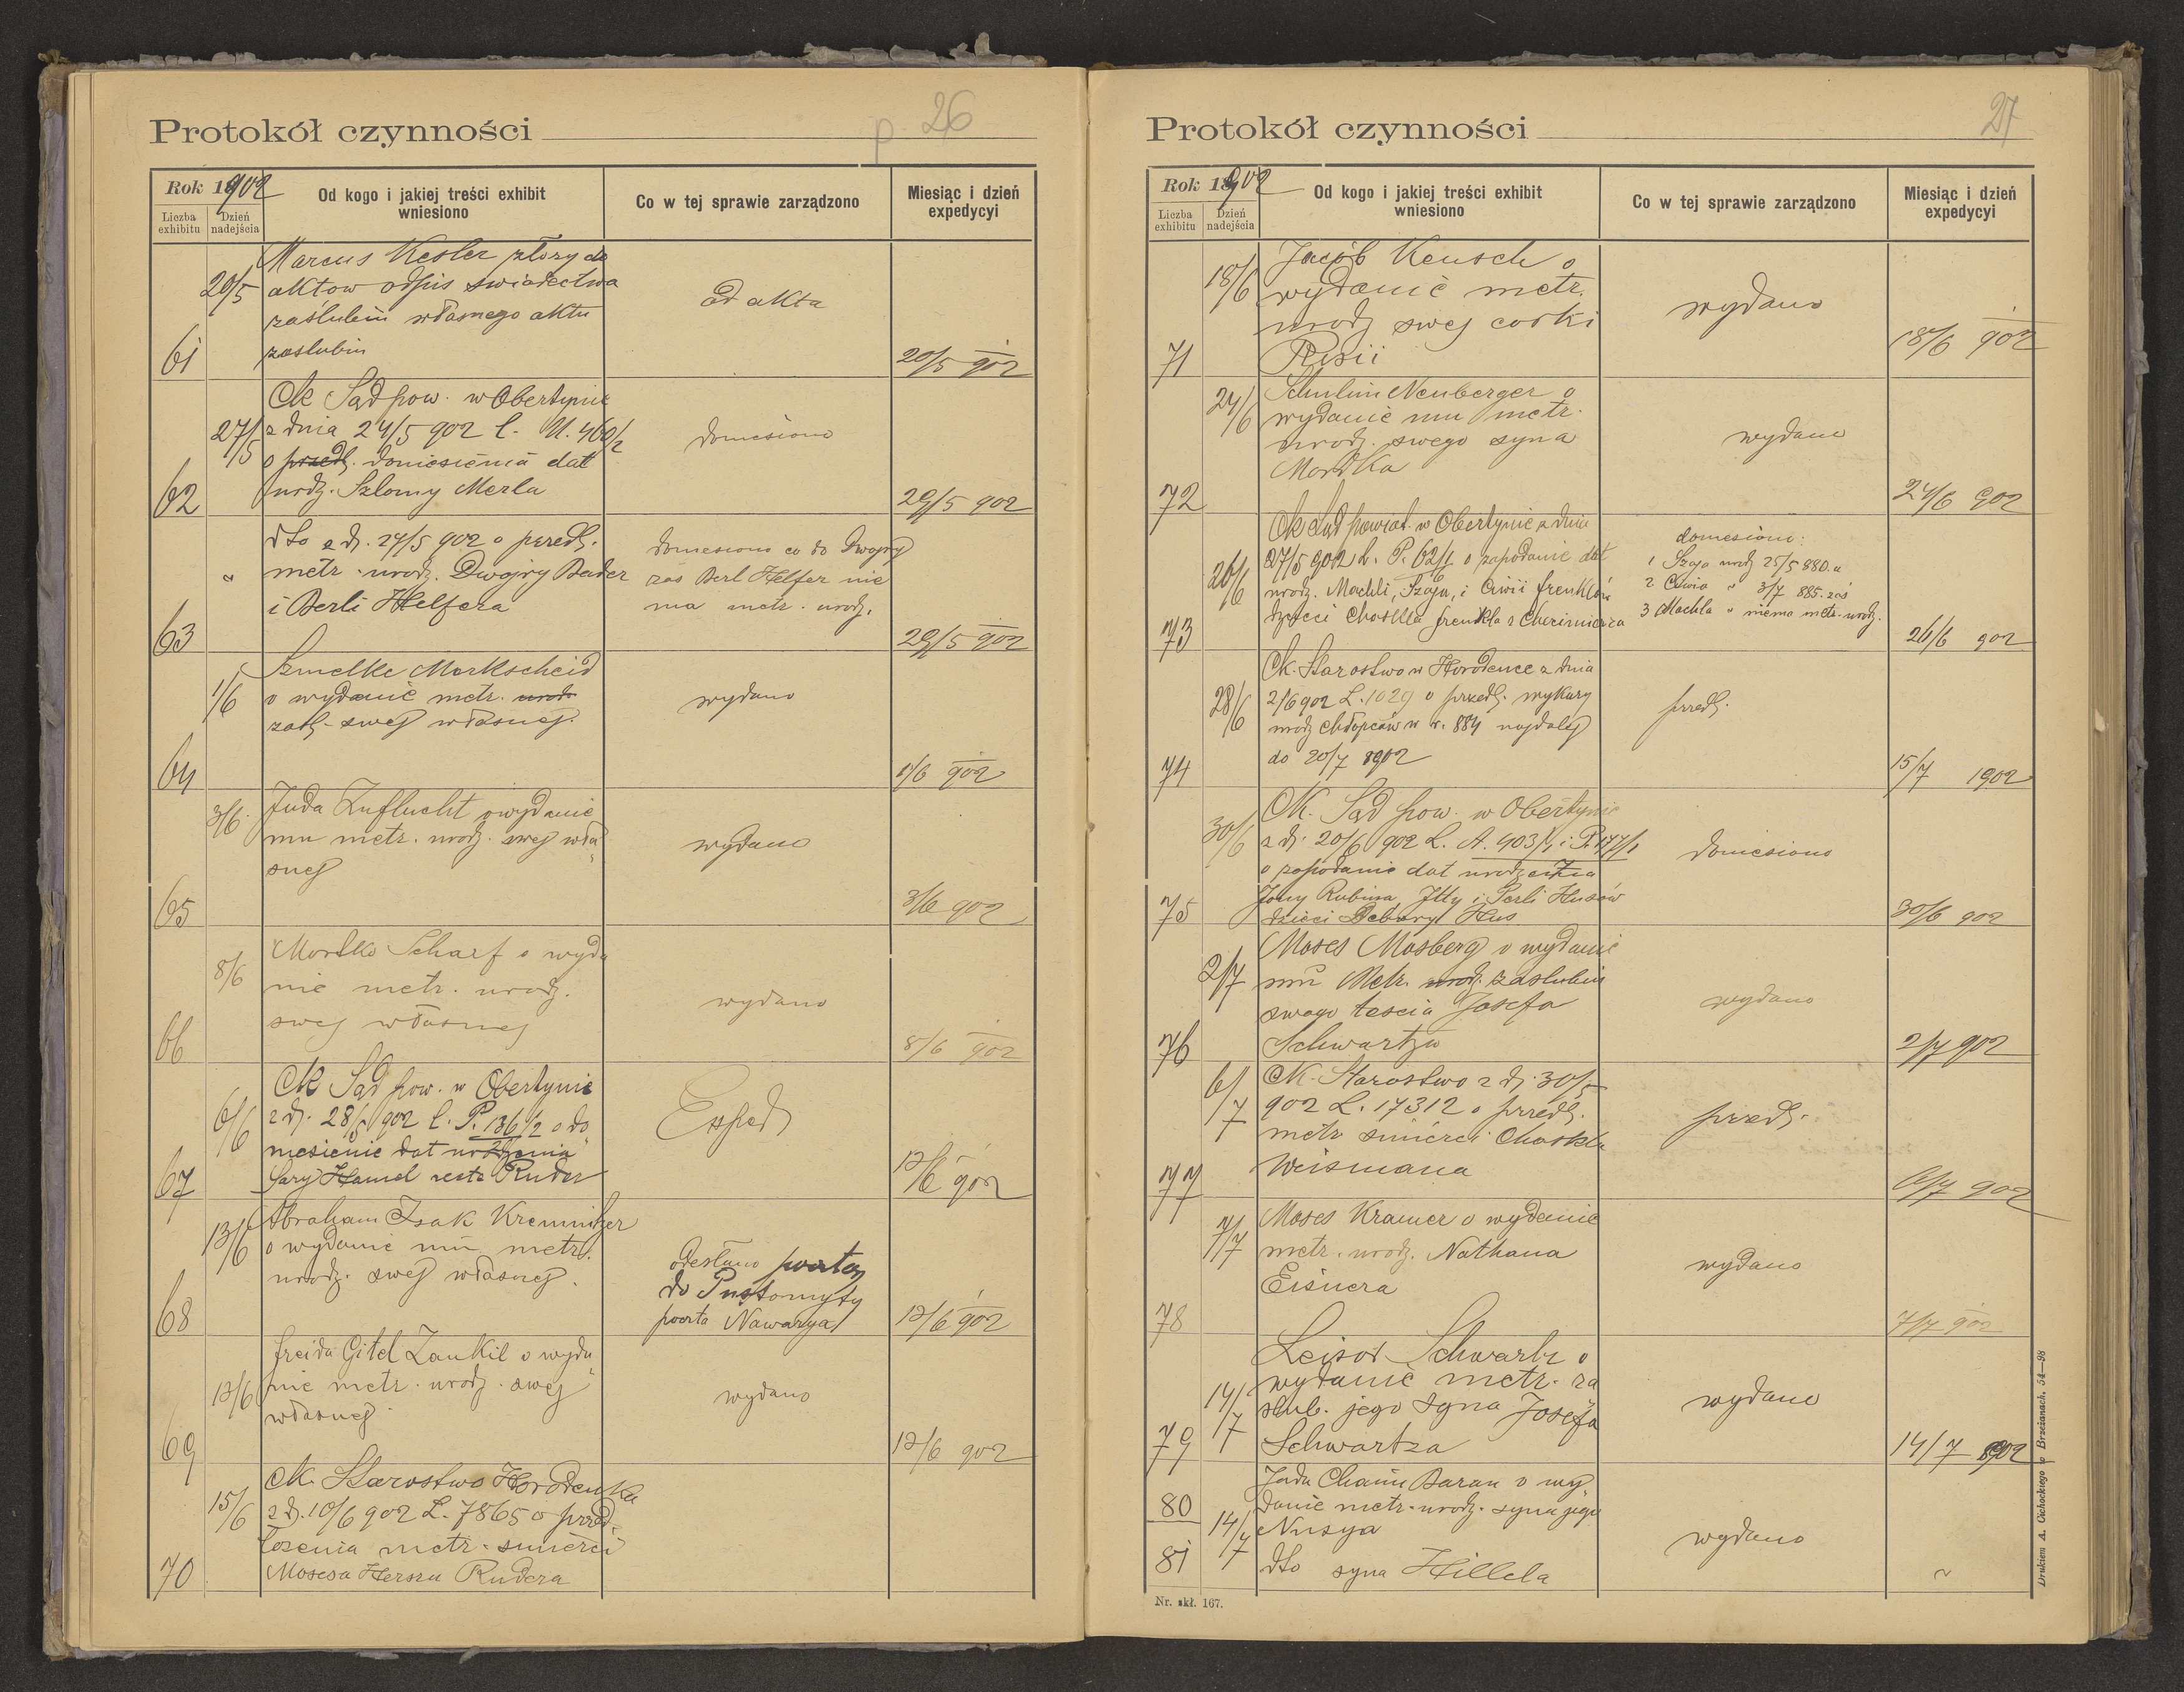 p. 26
Protokół czynności
Rok 1902
Od kogo i jakiej treści exhibit
wniesiono
Co w tej sprawie zarządzono
Miesiąc i dzień
expedycyi
Liczba
exhibitu
Dzień
nadejścia
61
20/5
Marcus Kesler złoży do
aktow odpis swiadectwa
zaślubin własnego aktu
zaslubin
ad akta
20/5 902
62
27/5
Ck Sąd pow. w Obertynie
z dnia 24/5 902 l. U. 460/2
o przedł. doniesienia dat
urodz. Szlomy Merla
doniesiono
29/5 902
63
"
dto z d. 24/5 902 o przedł.
metr. urodz. Dwojry Bader
i Berli Helfera
doniesiono co do Dwojry
zaś Berl Helfer nie
ma metr. urodz.
29/5 902
64
1/6
Szmelke Markscheid
o wydanie metr. urodz
zaśl. swej własnej.
wydano
1/6 902
65
3/6
Juda Zuflucht o wydanie
mu metr. urodz. swej wła
snej
wydano
3/6 902
66
8/6
Mordko Scharf o wyda
nie metr. urodz.
swej własnej
wydano
8/6 902
67
6/6
Ck Sąd pow. w Obertynie
z d. 28/5 902 l. P. 136/2 o do
niesienie dat urodzenia
Sary Hamel recte Ruder
Exped
12/6 902
68
13/6
Abraham Izak Kremnitzer
o wydanie mu metr.
urodz. swej własnej.
odesłano pocztą
do Pustomyty
poczta Nawarya
12/6 902
69
12/6
Freida Gitel Zankil o wyda
nie metr. urodz. swej
własnej.
wydano
12/6 902
70
15/6
Ck. Starostwo Horodenka
z d. 10/6 902 L. 7865 o przed
łożenia metr. smierci
Mosesa Hersza Rudera
27
Protokół czynności
Rok 1902
Od kogo i jakiej treści exhibit
wniesiono
Co w tej sprawie zarządzono
Miesiąc i dzień
expedycyi
Liczba
exhibitu
Dzień
nadejścia
71
18/6
Jacób Keusch o
wydanie metr.
urodz swej corki
Resii
wydano
18/6 902
72
24/6
Schulim Neuberger o
wydanie mu metr.
urodz. swego syna
Mordka
wydano
24/6 902
73
26/6
Ck Sąd powiat. w Obertynie z dnia
27/5 902 L. P. 62/1 o zapodanie dat
urodz. Machli, Szaja, i Cziwii Frenklów
dzieci Chaskla Frenkla z Chocimierza
doniesiono:
1 Szaja urodz 25/5 880. a
2 Cziwia " 3/7 885. zaś
3 Machla " niema metr. urodz.
26/6 902
74
28/6
Ck. Starostwo w Horodence z dnia
2/6 902 L. 1029 o przedł. wykazy
urodz chłopców w r. 884 najdalej
do 20/7 1902
przedł.
15/7 1902
75
30/6
CK. Sąd pow. w Obertynie
z d. 20/6 902 L. A. 403/1 i P. 177/1
o zapodanie dat urodzenia
Jony Rubina, Itty i Perli Husów
dzieci Debory Hus
doniesiono
30/6 902
76
2/7
Moses Mosberg o wydanie
mu Metr. urodz. zaslubin
swego tescia Josefa
Schwartza
wydano
2/7 902
77
6/7
CK. Starostwo z d. 30/5
902 L. 17312 o przedł.
metr smierci Chaskla
Weismana
przedł.
6/7 902
78
7/7
Moses Kramer o wydanie
metr. urodz. Nathana
Eisnera
wydano
7/7 902
79
14/7
Leisor Schwartz o
wydanie metr. za
slub. jego syna Josefa
Schwartza
wydano
14/7 902
80
14/7
Juda Chaim Baran o wy
danie metr. urodz. syna jego
Nusya
81
dto syna Hillela
wydano
~
Nr. skł. 167.
Drukiem A. Cichockiego w Brzeżanach. 54—98